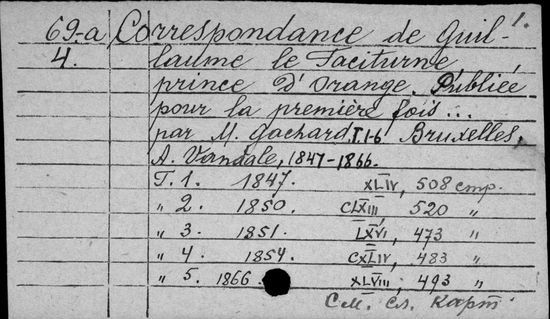 1.
69-а Correspondance de Guil-
4. laume le Taciturne,
prince d'Orange. Publiée
pour la première fois...
par M. Gachard. T.1-6 Bruxelles,
A. Vandale, 1847-1866.
T. 1. 1847. XLIV, 508 стр.
" 2. 1850. CLXIII, 520 "
" 3. 1851. LXVI, 473 "
" 4. 1854. CXLIV, 483 "
" 5. 1866. XLVIII, 493 "
См. сл. карт